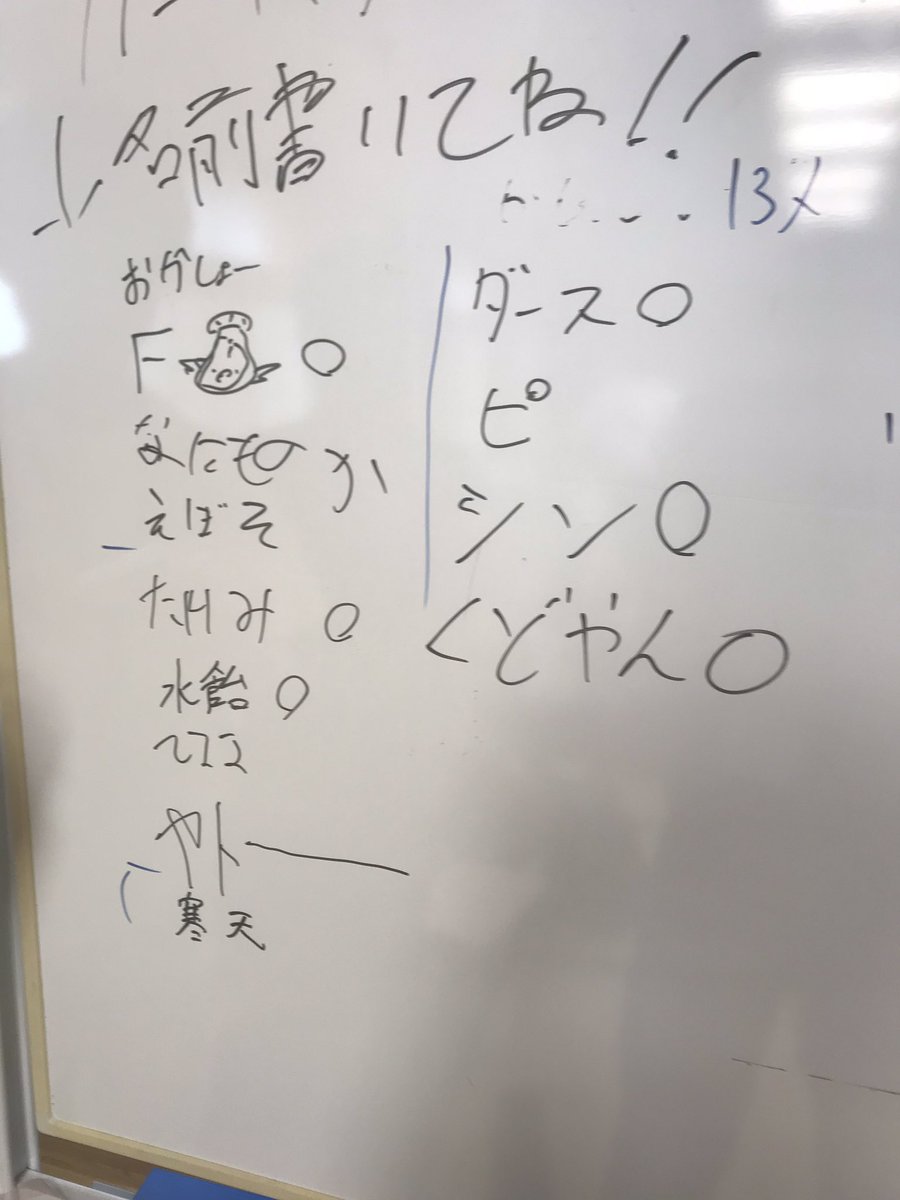 ↓名前書いてね!!
13人
おかしょー
F ○
なにものか
えばそ
たけみ ○
水飴 ○
ててコ
やトー
寒天
ダース ○
ピ
シン ○
くどやん ○